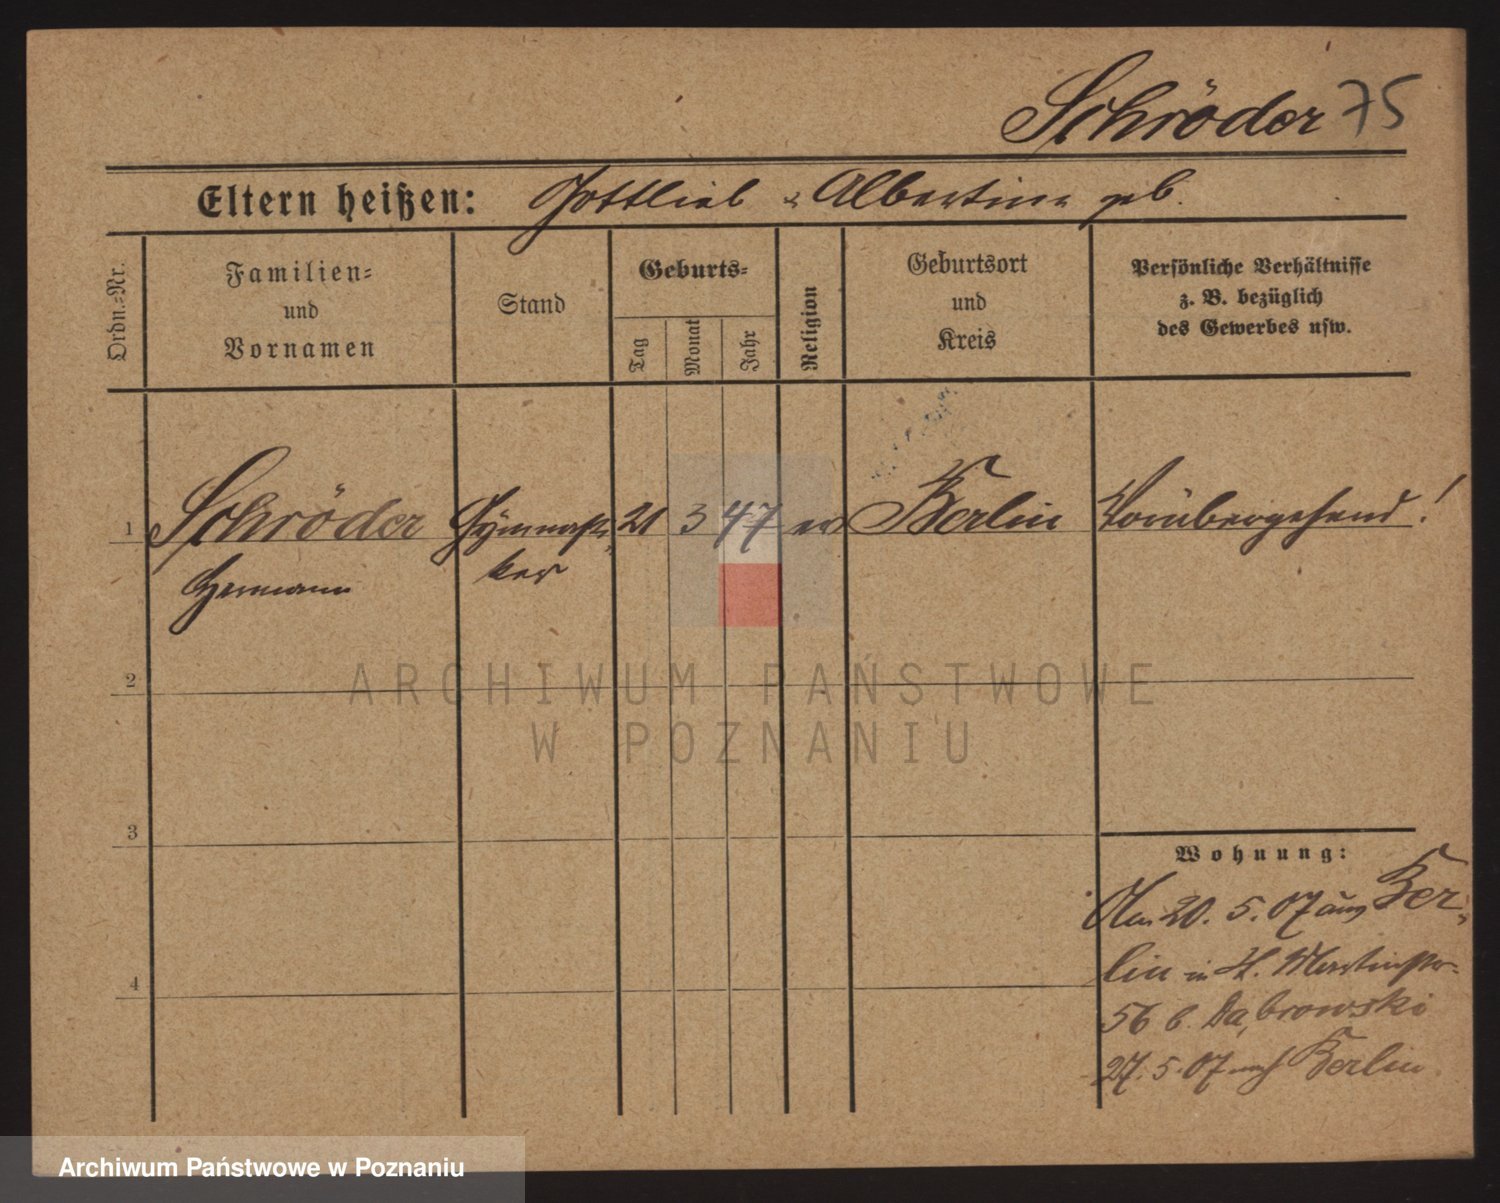 Schröder 75
Eltern heißen: Gottlieb & Albertine geb.
Ordn.-Nr.
Familien-
und
Vornamen
Stand
Geburts-
Tag
Monat
Jahr
Religion
Geburtsort
und
Kreis
Persönliche Verhältnisse
z. B. bezüglich
des Gewerbes usw.
1 Schröder Gymnasti- 21 3 47 ev Berlin Vorübergehend!
Hermann ker
2
ARCHIWUM PAŃSTWOWE
W POZNANIU
3
Wohnung:
Am 20. 5. 07 aus Ber-
lin in St. Martinstr.
4
56 b. Dąbrowski
27. 5. 07 nach Berlin.
Archiwum Państwowe w Poznaniu